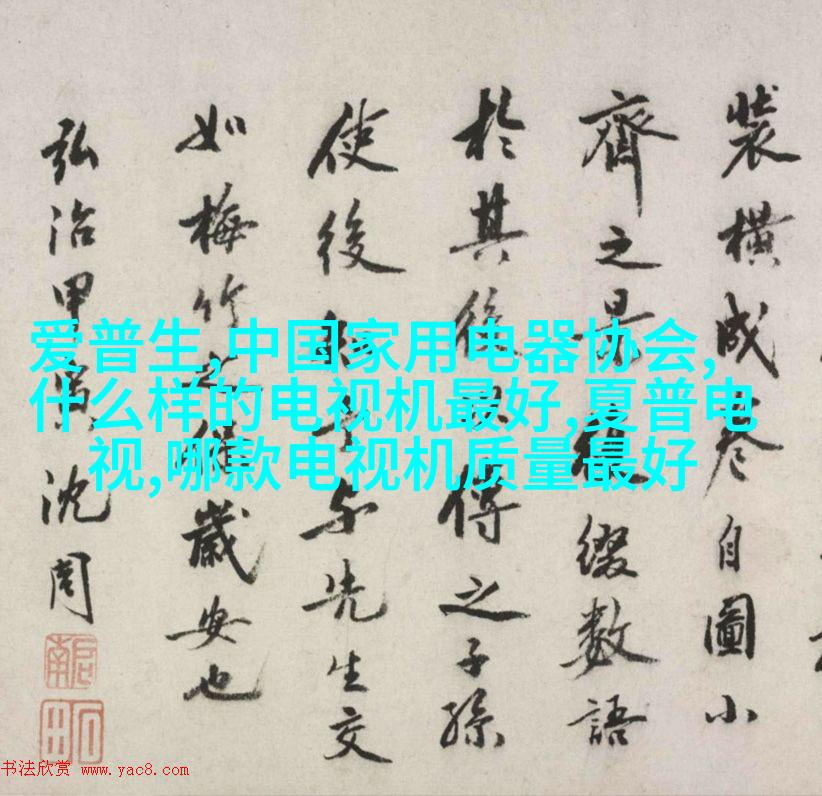 裝橫成卷自圖小
齊之景綴數語
於其後得之子孫
使後知吾与先生交
如梅竹之歲安也
弘治甲沈周
啓南
石田
爱普生,中国家用电器协会,
什么样的电视机最好,夏普电
视,哪款电视机质量最好
书法欣赏 www.yac8.com